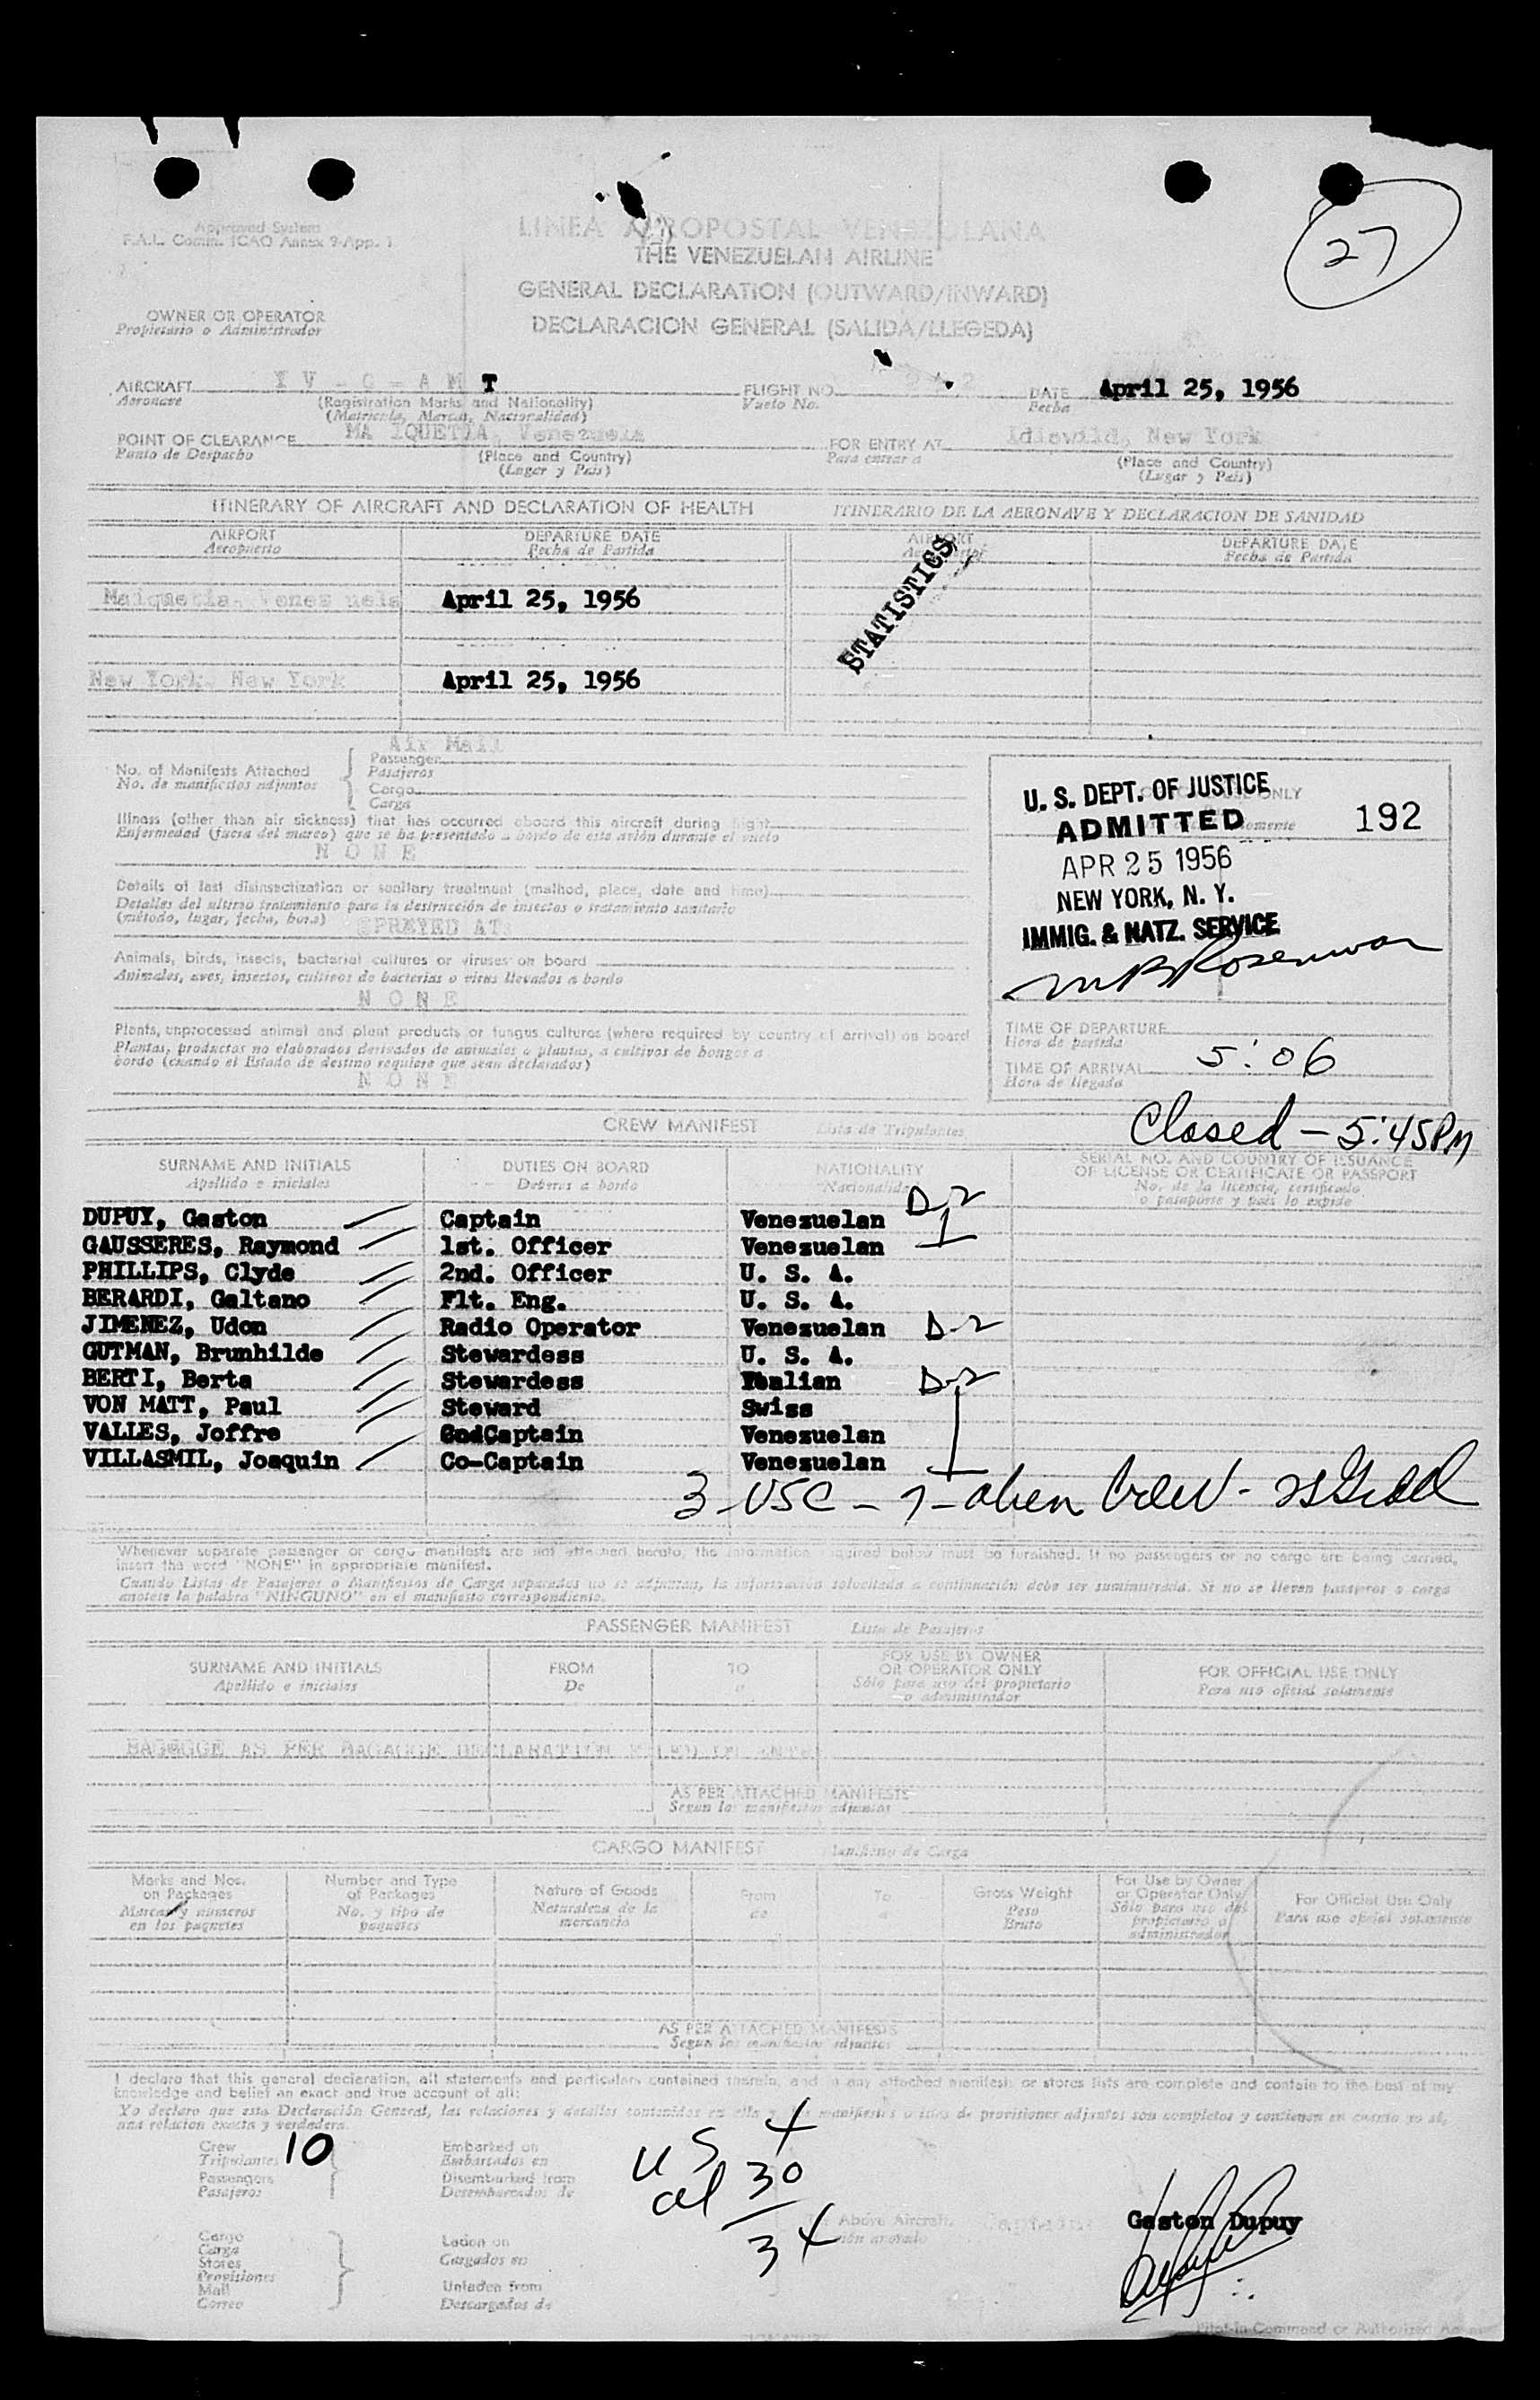 27
Approved System
F.A.L. Comm. ICAO Annex 9-App. 1
LINEA AEROPOSTAL VENEZOLANA
THE VENEZUELAN AIRLINE
GENERAL DECLARATION (OUTWARD/INWARD)
DECLARACION GENERAL (SALIDA/LLEGEDA)
OWNER OR OPERATOR
Propietario o Administrador
AIRCRAFT Y V - C - A M T FLIGHT NO. DATE April 25, 1956
Aeronave (Registration Marks and Nationality) Vuelo No. Fecha
(Matricula, Marca, Nacionalidad)
POINT OF CLEARANCE MA IQUETIA, Venezuela FOR ENTRY AT Idlewild, New York
Punto de Despacho (Place and Country) Para entrar a (Place and Country)
(Lugar y Pais) (Lugar y Pais)
ITINERARY OF AIRCRAFT AND DECLARATION OF HEALTH ITINERARIO DE LA AERONAVE Y DECLARACION DE SANIDAD
AIRPORT DEPARTURE DATE AIRPORT DEPARTURE DATE
Aeropuerto Fecha de Partida Fecha de Partida
STATISTICS
Maiquetia, Venezuela April 25, 1956
New York, New York April 25, 1956
Air Mail
No. of Manifests Attached Passenger
No. de manifiestos adjuntos Pasajeros
Cargo
Carga
Illness (other than air sickness) that has occurred aboard this aircraft during flight
Enfermedad (fuera del mareo) que se ha presentado a bordo de este avión durante el vuelo
N O N E
Details of last disinsectization or sanitary treatment (method, place, date and time)
Detalles del ultimo tratamiento para la destrucción de insectos o tratamiento sanitario
(método, lugar, fecha, hora) SPREYED AT:
Animals, birds, insects, bacterial cultures or viruses on board
Animales, aves, insectos, cultivos de bacterias o virus llevados a bordo
N O N E
Plants, unprocessed animal and plant products or fungus cultures (where required by country of arrival) on board
Plantas, productos no elaborados derivados de animales o plantas, a cultivos de hongos a
bordo (cuando el Estado de destino requiere que sean declarados)
N O N E
U. S. DEPT. OF JUSTICE ONLY
ADMITTED 192
APR 25 1956
NEW YORK, N. Y.
IMMIG. & NATZ. SERVICE
TIME OF DEPARTURE
Hora de partida
TIME OF ARRIVAL 5:06
Hora de llegada
Closed - 5:45PM
CREW MANIFEST Lista de Tripulantes
SURNAME AND INITIALS DUTIES ON BOARD NATIONALITY SERIAL NO. AND COUNTRY OF ISSUANCE
Apellido e iniciales Deberes a bordo Nacionalidad OF LICENSE OR CERTIFICATE OR PASSPORT
No. de la licencia, certificado
o pasaporte y pais lo expide
DUPUY, Gaston Captain Venezuelan D-2
GAUSSERES, Raymond 1st. Officer Venezuelan
PHILLIPS, Clyde 2nd. Officer U. S. A.
BERARDI, Galtano Flt. Eng. U. S. A.
JIMENEZ, Udon Radio Operator Venezuelan D-2
GUTMAN, Brunhilde Stewardess U. S. A.
BERTI, Berta Stewardess Italian D-2
VON MATT, Paul Steward Swiss
VALLES, Joffre Captain Venezuelan
VILLASMIL, Joaquin Co-Captain Venezuelan
3 USC - 7 - alien Crew -
Whenever separate passenger or cargo manifests are not attached hereto, the information required below must be furnished. If no passengers or no cargo are being carried,
insert the word "NONE" in appropriate manifest.
Cuando Listas de Pasajeros o Manifiestos de Carga separados no se adjuntan, la información solicitada a continuación debe ser suministrada. Si no se llevan pasajeros o carga
anotese la palabra "NINGUNO" en el manifiesto correspondiente.
PASSENGER MANIFEST Lista de Pasajeros
SURNAME AND INITIALS FROM TO FOR USE BY OWNER FOR OFFICIAL USE ONLY
Apellido e iniciales De a OR OPERATOR ONLY Para uso oficial solamente
Sólo para uso del propietario
o administrador
BAGGAGE AS PER BAGAGGE DECLARATION
AS PER ATTACHED MANIFESTS
Segun los manifiestos adjuntos
CARGO MANIFEST Manifiesto de Carga
Marks and Nos. Number and Type Nature of Goods From To Gross Weight For Use by Owner For Official Use Only
on Packages of Packages Naturaleza de la de a Peso or Operator Only Para uso oficial solamente
Marcas y números No. y tipo de mercancia Bruto Sólo para uso del
en los paquetes paquetes propietario o
administrador
AS PER ATTACHED MANIFESTS
Segun los manifiestos adjuntos
I declare that this general declaration, all statements and particulars contained therein, and in any attached manifests or stores lists are complete and contain to the best of my
knowledge and belief an exact and true account of all:
Yo declaro que esta Declaración General, las relaciones y detalles contenidos en ella y los manifiestos o listas de provisiones adjuntos son completos y contienen en cuanto yo sé,
una relacion exacta y verdadera.
Crew 10 Embarked on
Tripulantes Embarcados en
Passengers Disembarked from
Pasajeros Desembarcados de
US 4
al 30
34
Above Aircraft. Captain: Gaston Dupuy
Cargo Laden on
Carga Cargados en
Stores
Provisiones
Mail Unladen from
Correo Descargados de
Pilot-in-Command or Authorized